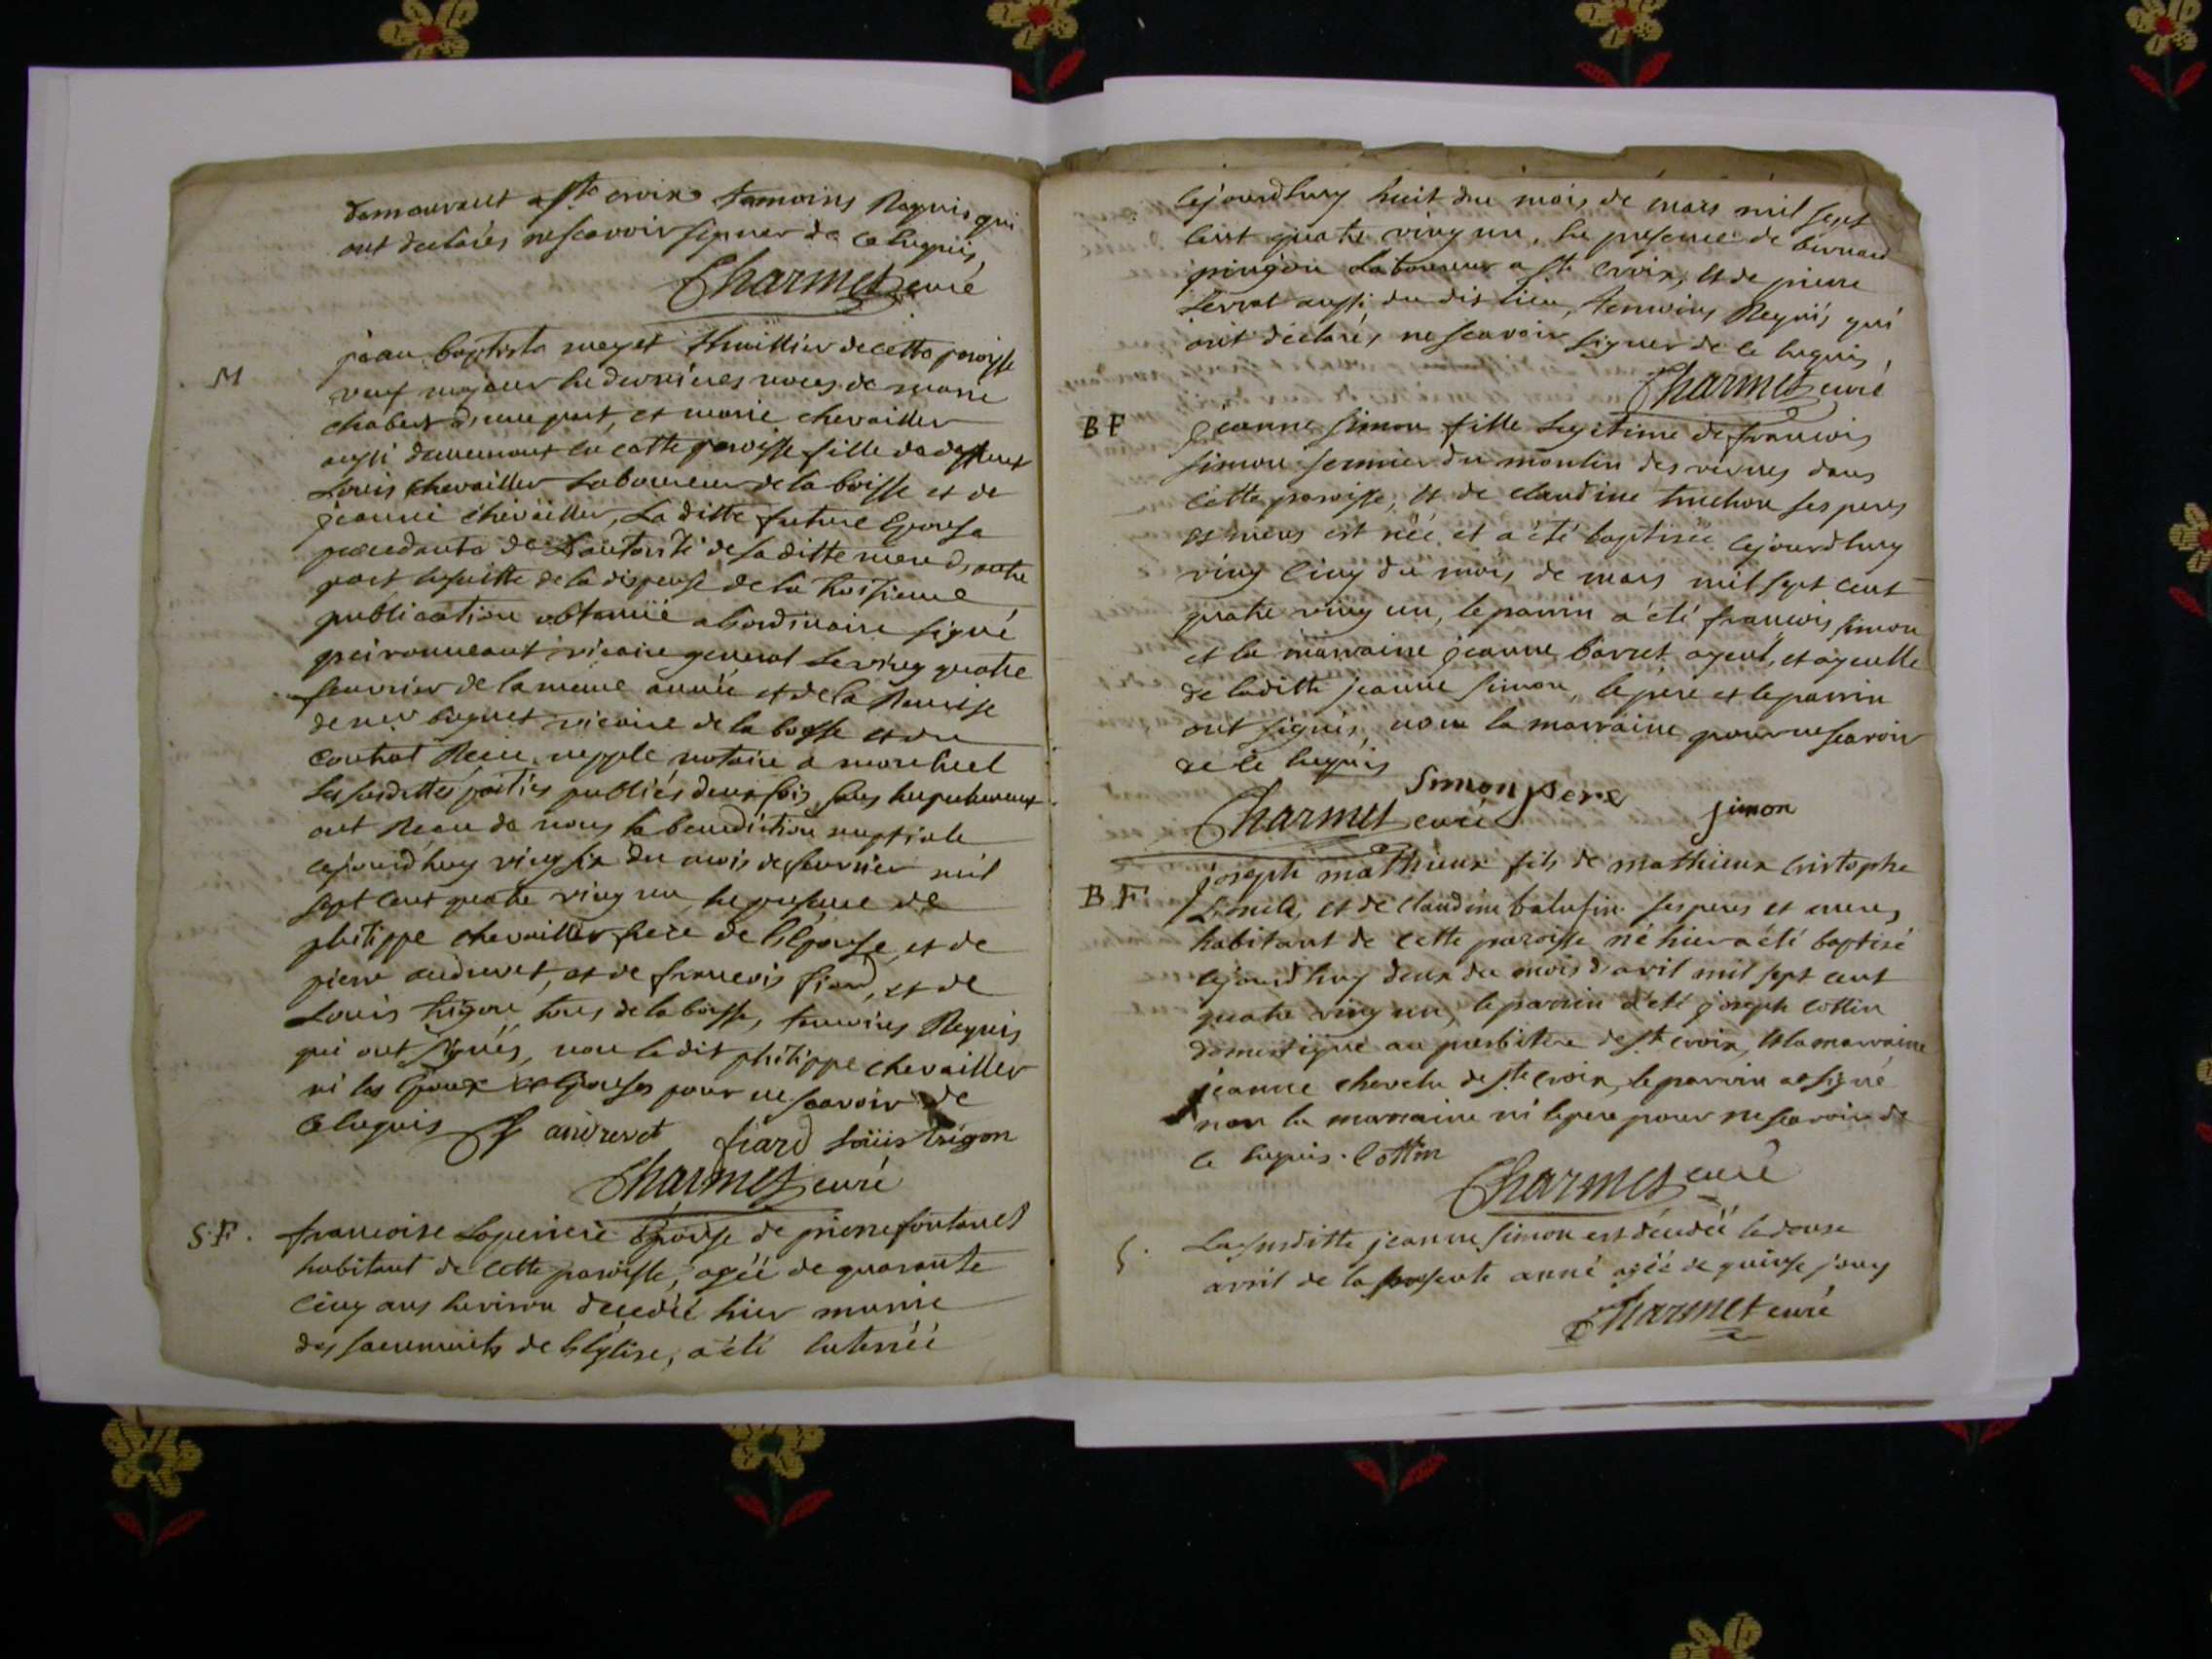 demeurant a ste croix temoins Requis qui
ont declarés ne scavoir signer de ce Enquis
Charmet curé
M
jean baptiste meyet thuillier de cette paroisse
veuf majeur en dernieres noces de marie
chabert d'une part, et marie chevailler
aussi demeurant en cette paroisse fille de deffunt
Louis chevailler Laboureur de la boisse et de
jeanne chevailler, La ditte future Epouse
procedante de L'autorité de sa ditte mere d'autre
part ensuitte de la dispense de la troisieme
publication obtenüe a l'ordinaire signé
vicaire general Le ving quatre
fevrier de la meme année et de la Remise
de mr vicaire de la boisse et du
contrat Recu nepple notaire a monluel
Les susdittes parties publiés deux fois sans Empechement
ont Recu de nous la benediction nuptiale
cejourd'huy ving six du mois de fevrier mil
sept cent quatre ving un, en presence de
philippe chevailler frere de l'Epouse, et de
pierre andrevet, et de francois fiard, et de
Louis trigon tous de la boisse, temoins Requis
qui ont signés, non le dit philippe chevailler
ni les Epoux et Epouse pour ne scavoir de
ce Enquis P andrevet fiard Loüis trigon
Charmet curé
S.F. francoise Laperriere Epouse de pierre fontanet
habitant de cette paroisse, agéé de quarante
cinq ans Environ decedéé hier munie
des sacrements de l'Eglise, a été Enterréé
cejourdhuy huit du mois de mars mil sept
cent quatre ving un, En presence de bernard
pingon Laboureur a ste croix, et de pierre
serrat aussi du dis lieu, temoins Requis qui
ont déclarés ne scavoir signer de ce Enquis,
Charmet curé
BF
jeanne simon fille Legitime de francois
simon fermier du moulin des vernes dans
cette paroisse, et de claudine truchon ses peres
et meres est néé et a été baptiséé cejourdhuy
ving cinq du mois de mars mil sept cent
quatre ving un, le parrin a été francois simon
et la marraine jeanne barret ayeul, et ayeulle
de laditte jeanne simon, le pere et le parrin
ont signés, non la marraine pour ne scavoir
de ce Enquis
Simon pere simon
Charmet curé
BF
joseph mathieux fils de mathieux cristophe
et de claudine ses peres et meres
habitant de cette paroisse né hier a été baptisé
cejourdhuy deux du mois d'avril mil sept cent
quatre ving un, le parrin a été joseph cottin
domestique au presbitere de ste croix, et la marraine
jeanne chevelu de ste croix, le parrin a signé
non la marraine ni le pere pour ne scavoir de
ce Enquis. Cottin
Charmet curé
S. La susditte jeanne simon est décédéé le douse
avril de la presente anné agéé de quinse jours
Charmet curé